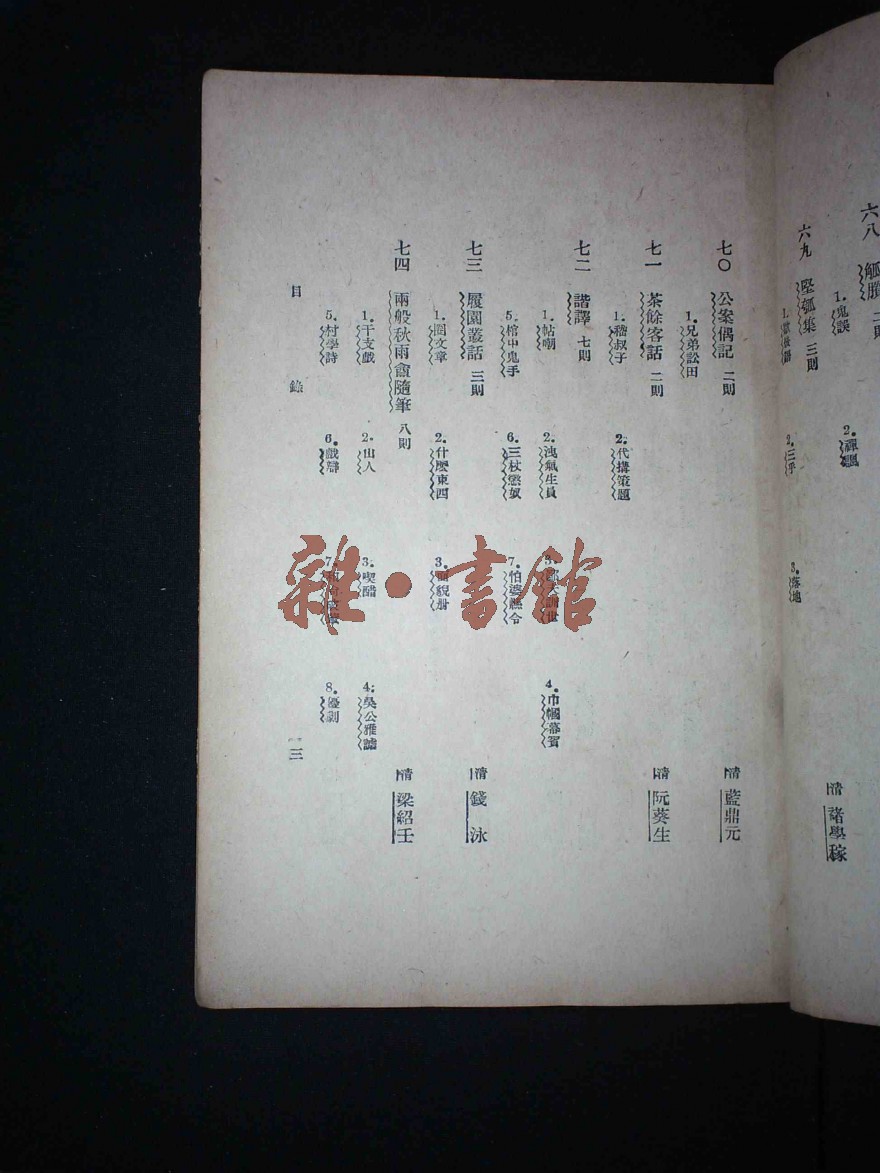 六八 觚賸 二則
1. 鬼誤 2.
六九 堅瓠集 三則 清 褚學稼
1. 2. 三乎 3. 落地
七〇 公案偶記 二則 清 藍鼎元
1. 兄弟訟田
七一 茶餘客話 二則 清 阮葵生
1. 嵇叔子 2. 代搆策題
七二 諧譯 七則
1. 帖嘲 2. 洩氣生員 3. 4. 巾幗幕賓
5. 棺中鬼手 6. 三杖懲奴 7. 怕婆縣令
七三 履園叢話 三則 清 錢泳
1. 圈文章 2. 什麼東西 3. 面貌册
七四 兩般秋雨盦隨筆 八則 清 梁紹壬
1. 干支戲 2. 山人 3. 喫醋 4. 吳公雅謔
5. 村學詩 6. 戲辯 7. 8. 優劇
目錄 三
雜·書館